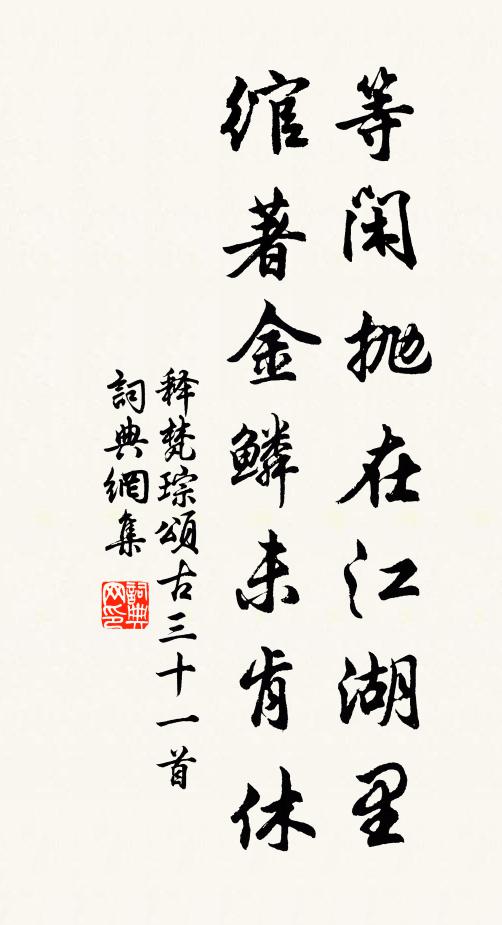 等閑抛在江湖里
綰著金鱗未肯休
释梵琮頌古三十一首
詞典網集
詞典网印